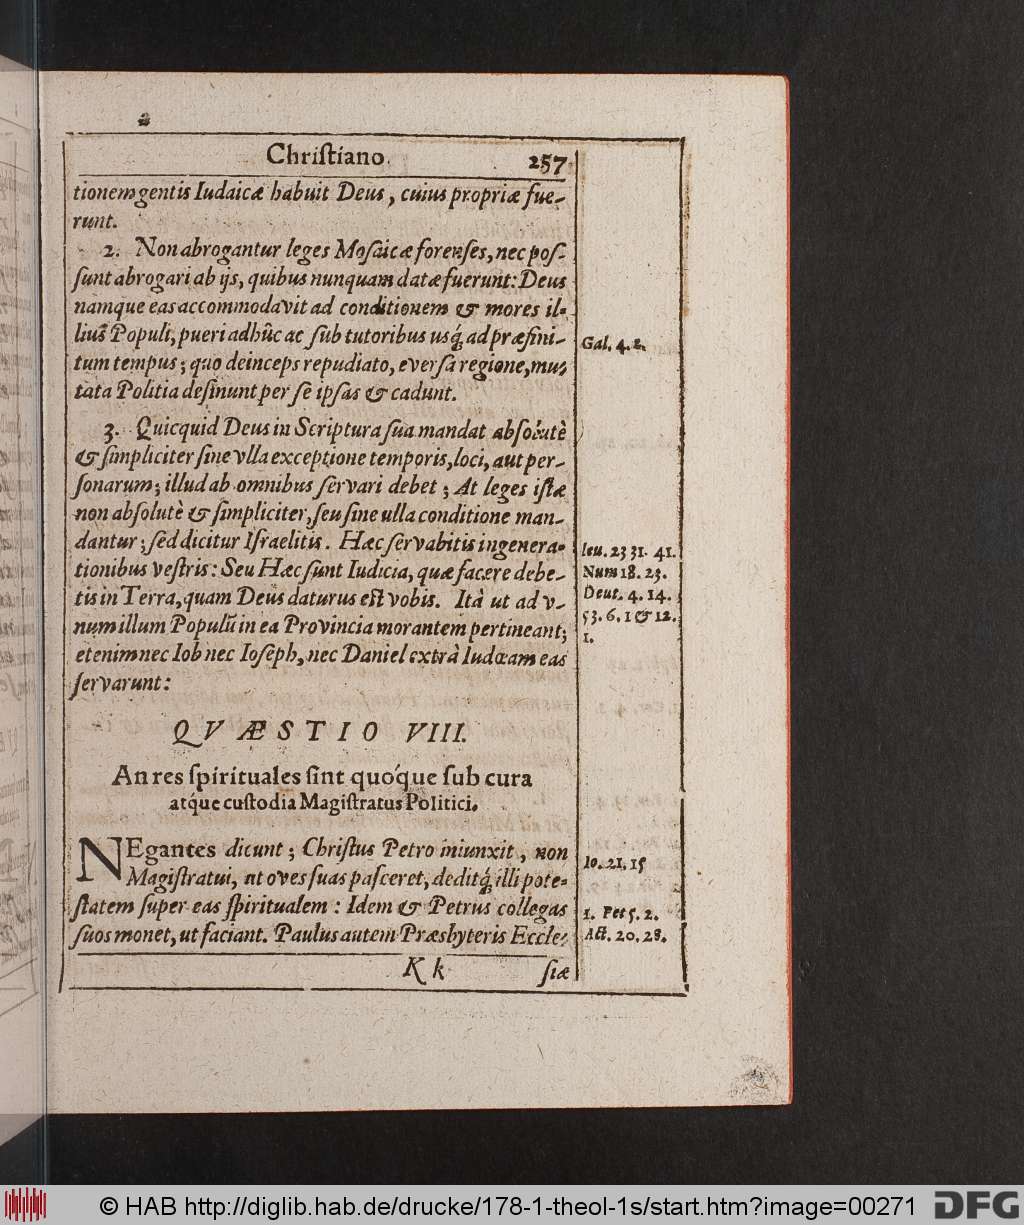 Chriſtiano. 257
tionem gentis Iudaicæ habuit Deus, cuius propriæ fue-
runt.
2. Non abrogantur leges Moſaicæ forenſes, nec poſ-
ſunt abrogari ab ijs, quibus nunquam datæ fuerunt: Deus
namque eas accommodavit ad conditionem & mores il-
lius Populi, pueri adhûc ac ſub tutoribus usq́ ad præfini-
Gal. 4. 2.
tum tempus; quo deinceps repudiato, everſa regione, mu-
tata Politia deſinunt per ſe ipſas & cadunt.
3. Quicquid Deus in Scriptura ſua mandat abſolutè
& ſimpliciter ſine vlla exceptione temporis, loci, aut per-
ſonarum; illud ab omnibus ſervari debet; At leges iſtæ
non abſolutè & ſimpliciter, ſeu ſine ulla conditione man-
dantur; ſed dicitur Iſraelitis. Hæc ſervabitis in genera-
leu. 23 31. 41.
tionibus veſtris: Seu Hæc ſunt Iudicia, quæ facere debe-
Num 18. 23.
tis in Terra, quam Deus daturus eſt vobis. Ità ut ad v-
Deut. 4. 14.
num illum Populũ in ea Provincia morantem pertineant;
53. 6. 1 & 12.
1.
etenim nec Iob nec Ioſeph, nec Daniel extrà Iudæam eas
ſervarunt:
QVÆSTIO VIII.
An res ſpirituales ſint quoq́ue ſub cura
atq́ue cuſtodia Magiſtratus Politici.
NEgantes dicunt; Chriſtus Petro iniunxit, non
Io. 21. 15
Magiſtratui, ut oves ſuas paſceret, deditq́ illi pote-
ſtatem ſuper eas ſpiritualem: Idem & Petrus collegas
1. Pet 5. 2.
ſuos monet, ut faciant. Paulus autem Præsbyteris Eccle-
Act. 20. 28.
K k ſiæ
© HAB http://diglib.hab.de/drucke/178-1-theol-1s/start.htm?image=00271
DFG